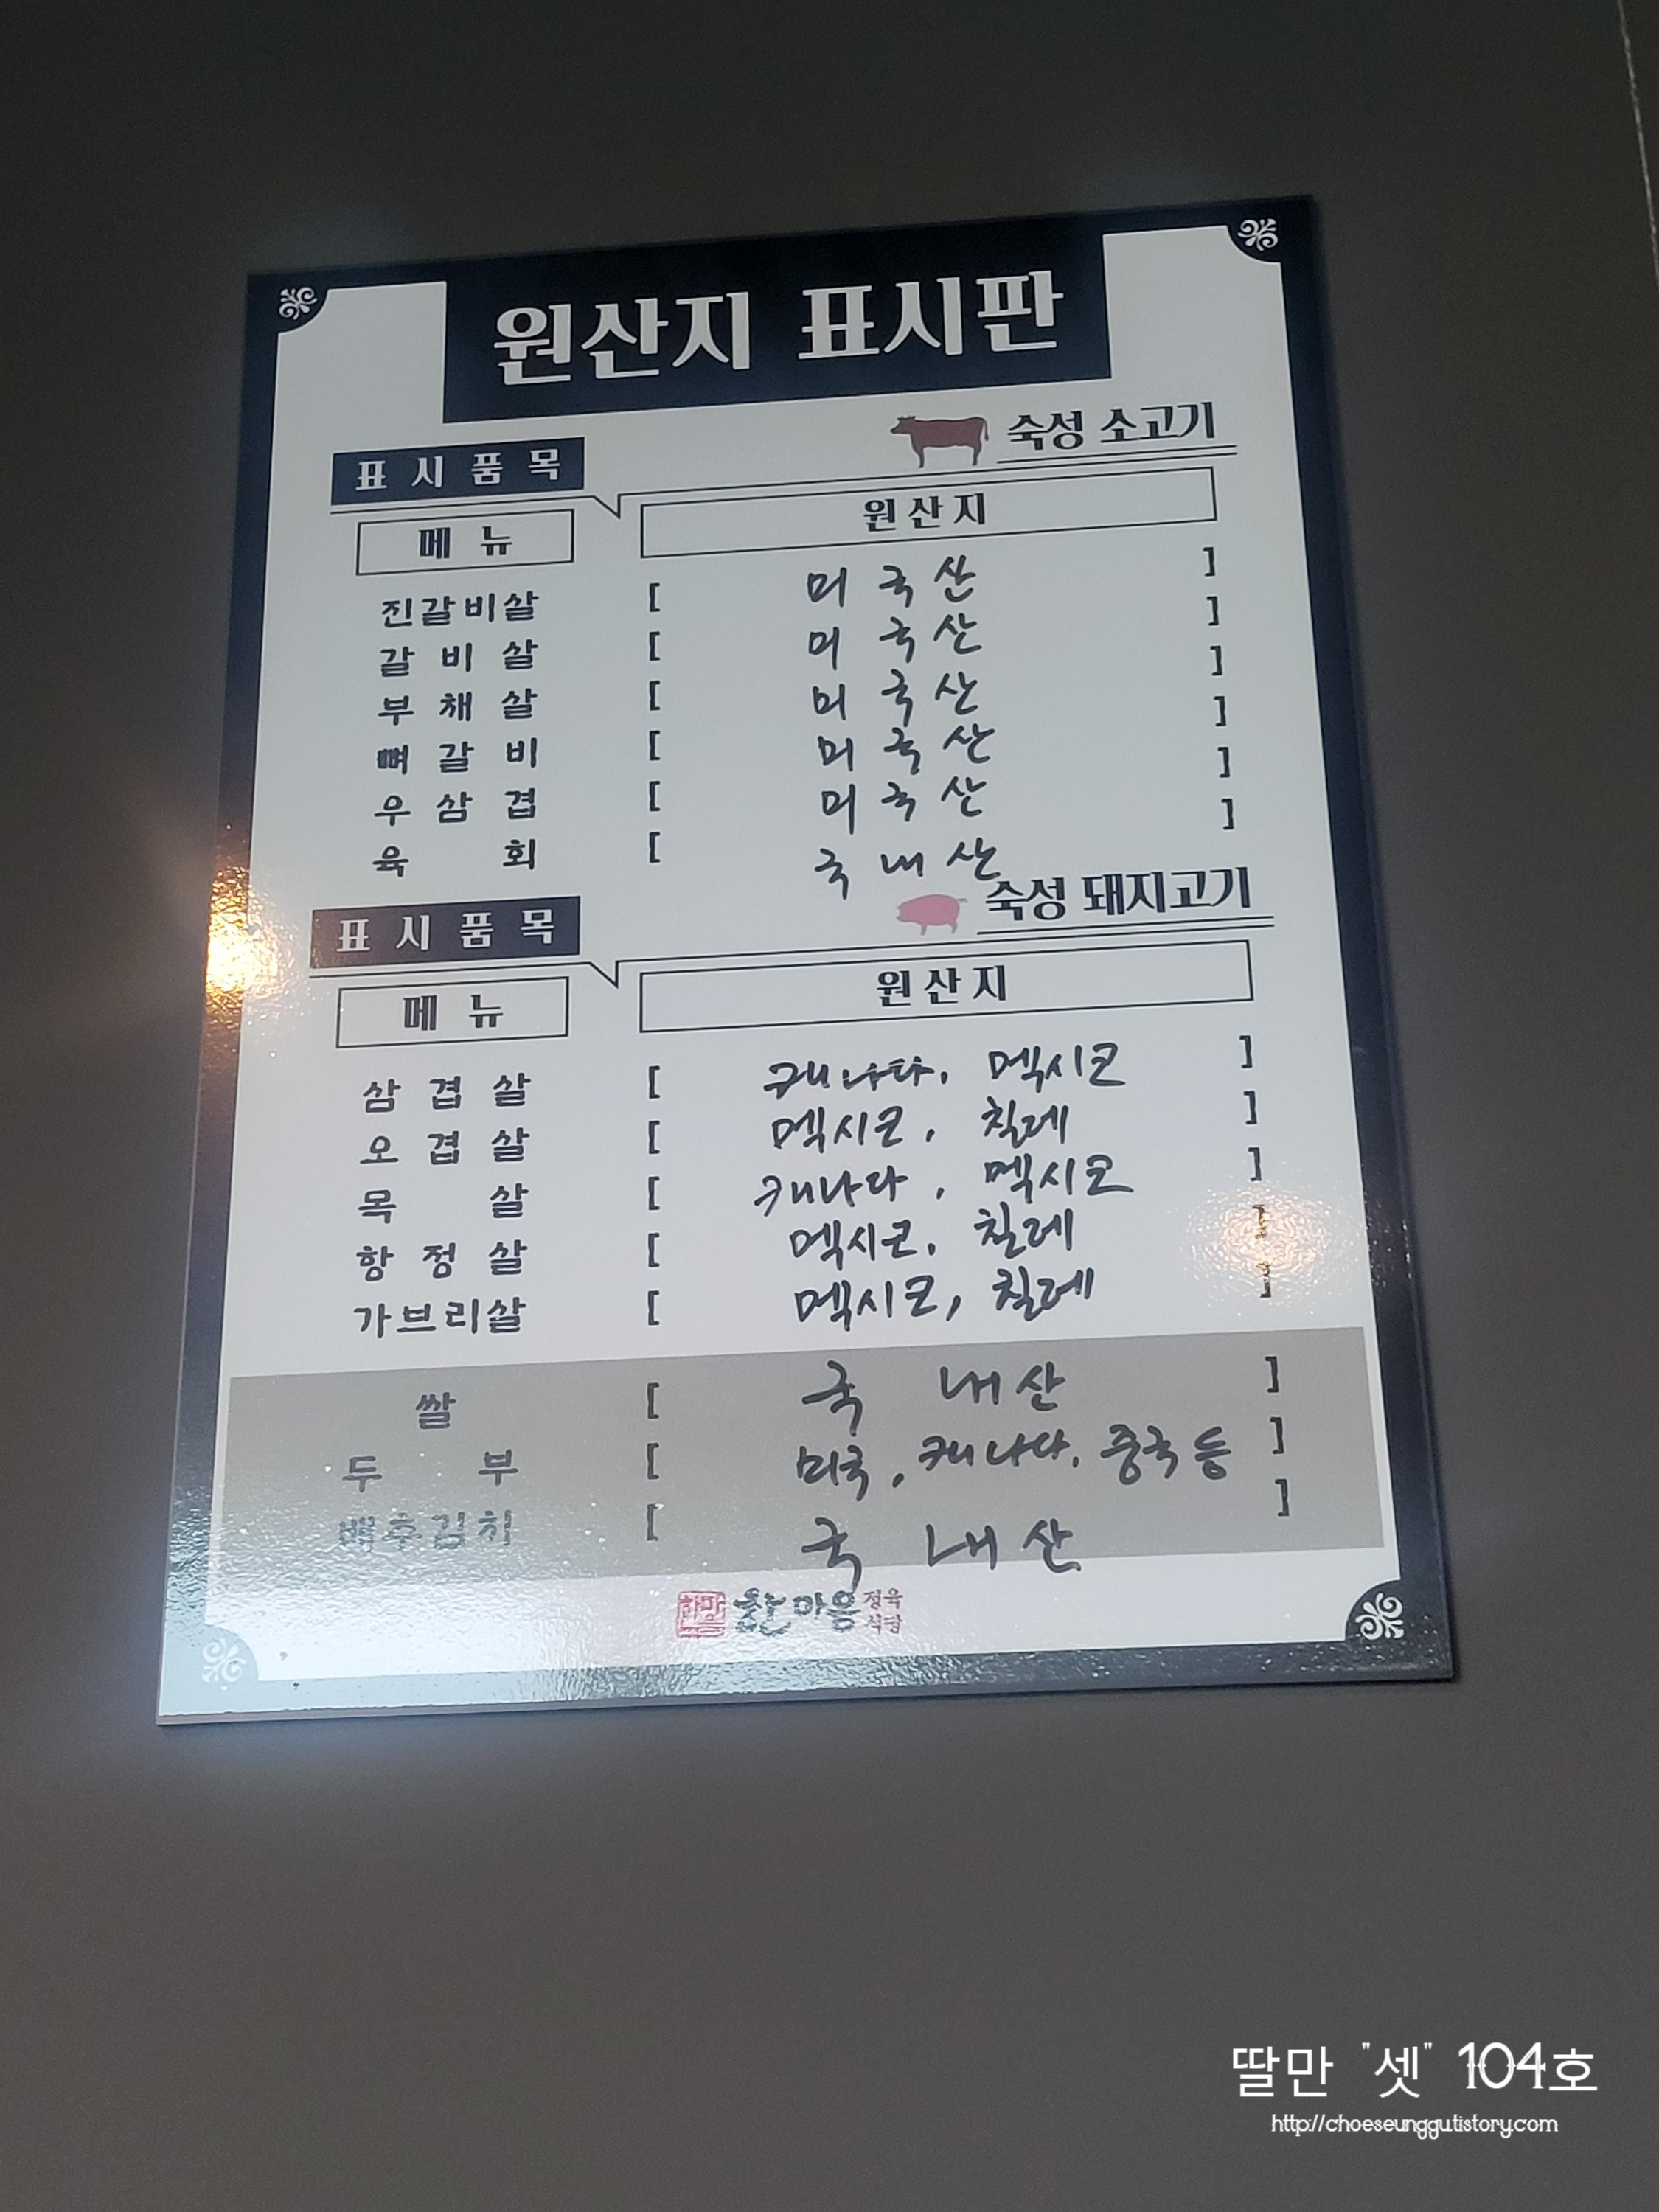 원산지 표시판
숙성 소고기
표시품목
메뉴 원산지
진갈비살 [ 미국산 ]
갈비살 [ 미국산 ]
부채살 [ 미국산 ]
뼈갈비 [ 미국산 ]
우삼겹 [ 미국산 ]
육회 [ 국내산 ]
숙성 돼지고기
표시품목
메뉴 원산지
삼겹살 [ 캐나다, 멕시코 ]
오겹살 [ 멕시코, 칠레 ]
목살 [ 캐나다, 멕시코 ]
항정살 [ 멕시코, 칠레 ]
가브리살 [ 멕시코, 칠레 ]
쌀 [ 국내산 ]
두부 [ 미국, 캐나다, 중국 등 ]
배추김치 [ 국내산 ]
한마음 정육식당
딸만 "셋" 104호
http://choeseunggu.tistory.com